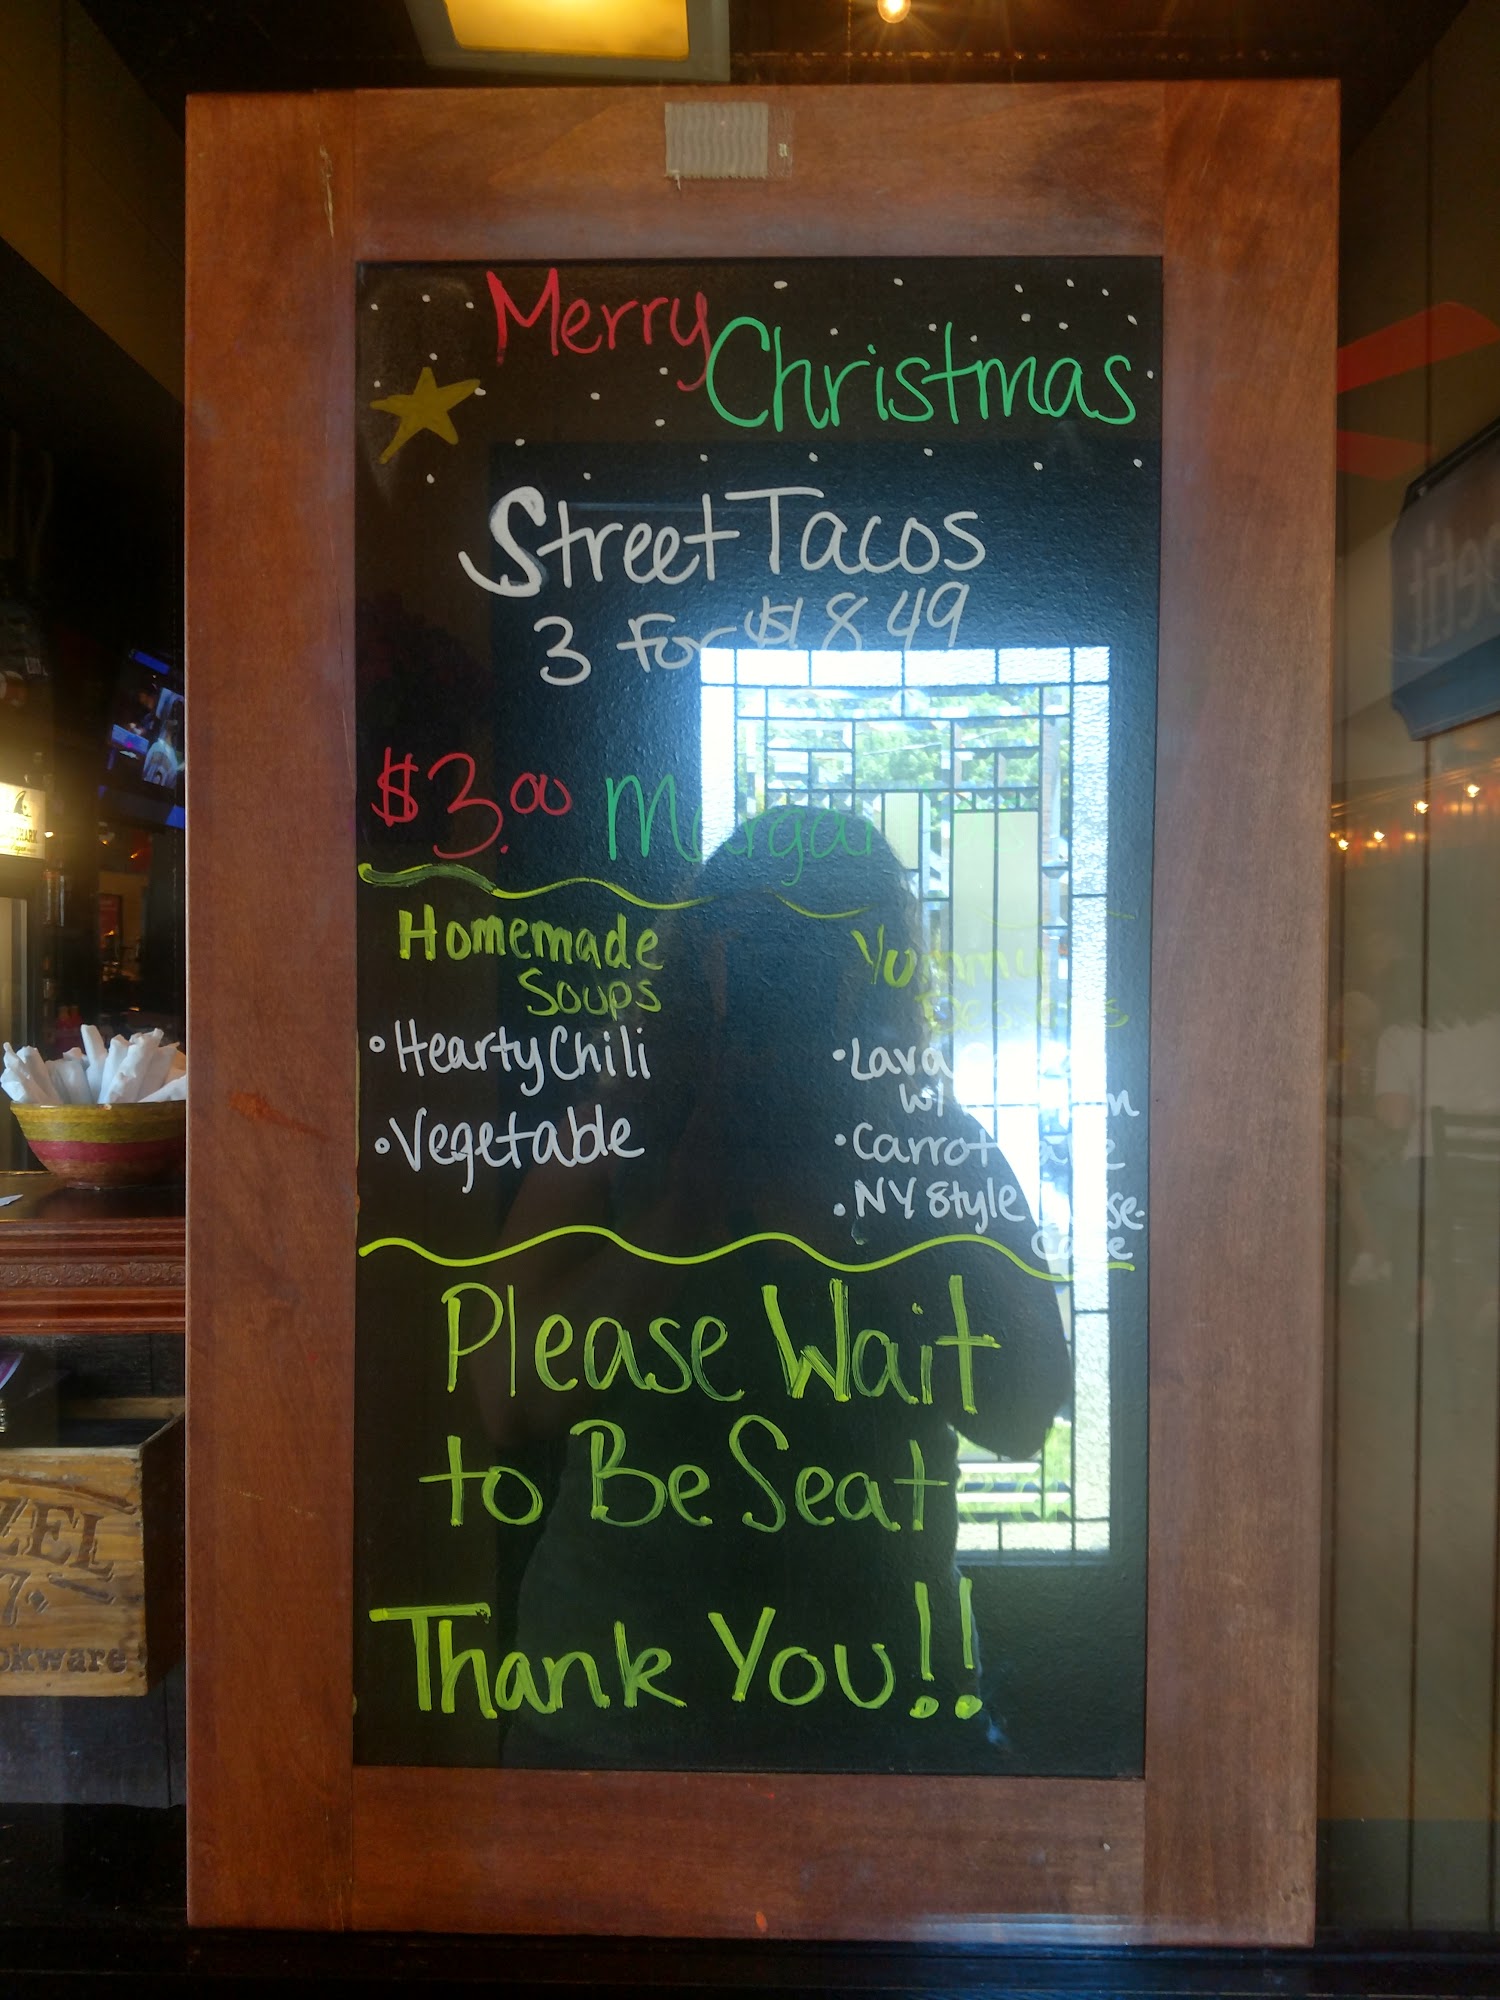 Merry
Christmas
Street Tacos
3 For $18 49
$3.00
Homemade
Soups
Yummy
• Hearty Chili
• Vegetable
• Lava
w/
• Carrot
• NY Style
Cake
Please Wait
to Be Seat
Thank You!!
ZEL